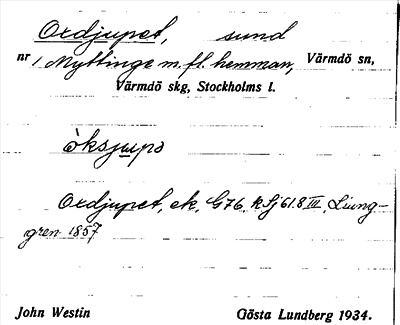 Oxdjupet, sund
nr 1 Myttinge m.fl. hemman, Värmdö sn,
Värmdö skg, Stockholms l.
òksjupə
Oxdjupet, ek. G76, k Sj 61.8 III, Ljung-
gren 1857
John Westin Gösta Lundberg 1934.